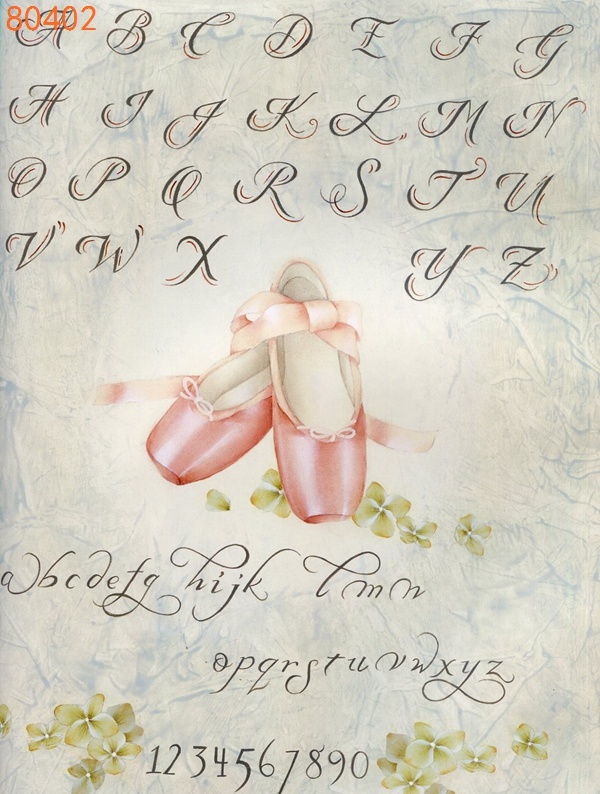 80402
A B C D E F G
H I J K L M N
O P Q R S T U
V W X Y Z
abcdefg hijk lmn
opqrstuvwxyz
1234567890